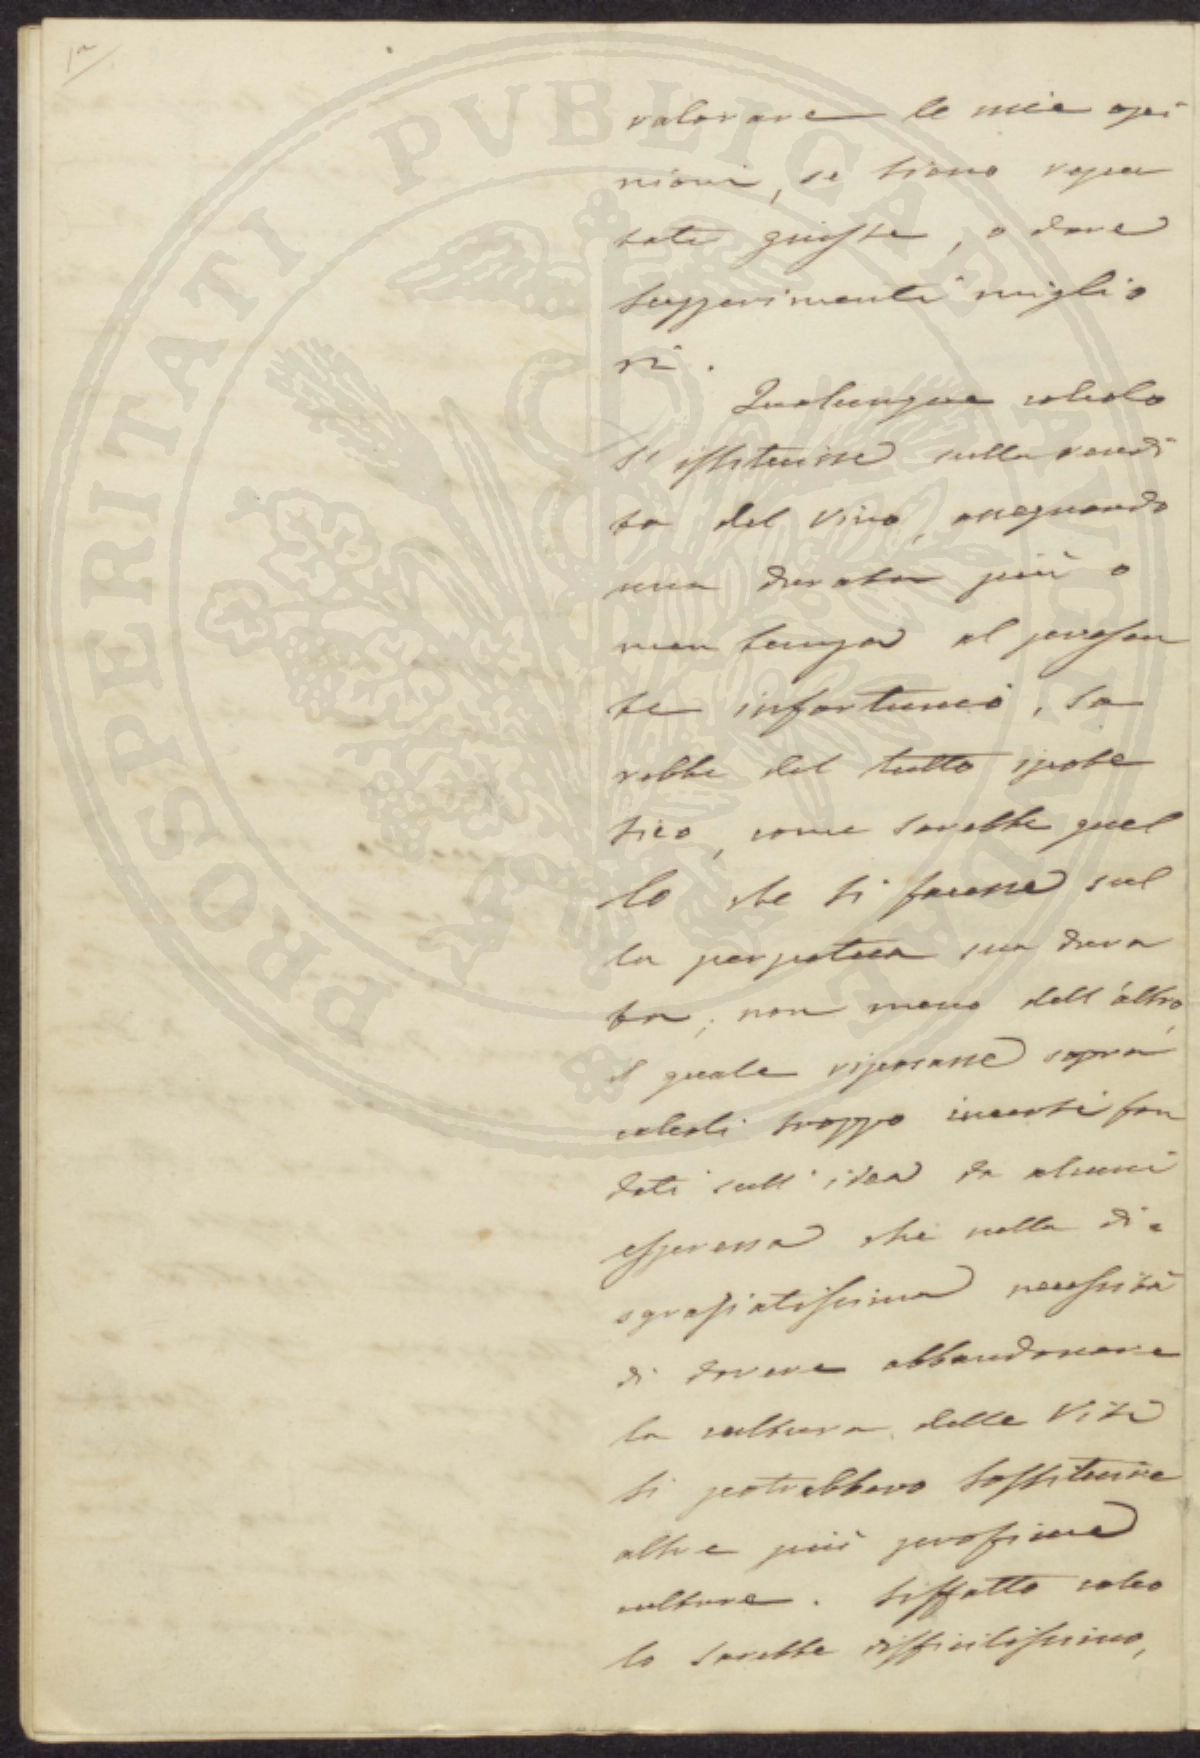 valorare le mie opi
nioni, se siano repu
tate giuste, o dare
suggerimenti miglio
ri.
Qualunque calcolo
s'istituisse sulla rendi
ta del vino, assegnando
una durata più o
men lunga al presen
te infortunio, sa
rebbe del tutto ipote
tico, come sarebbe quel
lo che si facesse sul
la perpetua sua dura
ta; non meno dell'altro,
il quale riposasse sopra
calcoli troppo incerti fon
dati sull'idea da alcuni
espressa che nella di=
sgraziatissima necessità
di dovere abbandonare
la cultura delle Viti
si potrebbero sostituire
altre più proficue
culture. Siffatto calco
lo sarebbe difficilissimo,
PROSPERITATI PVBLICAE AVGENDAE